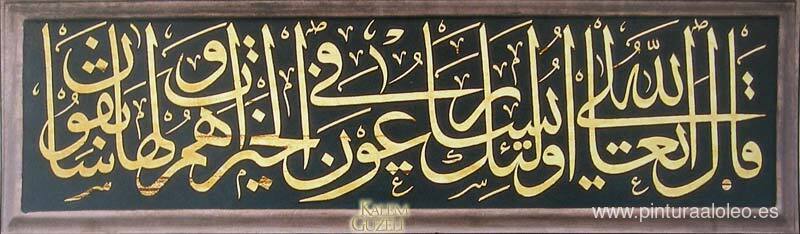 قال الله تعالى اولئك يسارعون في الخيرات وهم لها سابقون
KALEM
GÜZELİ
www.pinturaaloleo.es